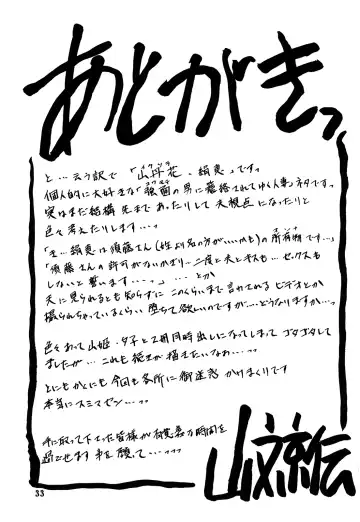 あとがきっ
と…云う訳で「山丹花、絹恵」ですっ
個人的に大好きな「強面の男に蓄捺されてゆく人妻ネタです。
実はまだ結構 先まで あったりして 夫視点になったりと
色々考えたりします…っ
「そ…絹恵は須藤さん(姓より名の方がいいかも)の所有物です…」
「須藤さんの許可がないかぎり…二度と夫とキスも…セックスも
しないと誓います…っ」……とか
夫に見られるとも知らずに このくらいまで言わされる ビデオとか
撮られちゃっているくらい 堕ちて欲しいのですが……どうなりますか…っ
色々あって 山姫・夕子と2冊同時出しになってしまって ゴタゴタして
ましたが… これも後々が 描きたいなぁ…っ
とにもかくにも 今回も各所に御迷惑 かけまくりです
本当に スミマセン…っっ
手に取って下さった皆様が 有意義な時間を
過ごせます事を願って…っっっ
山文京伝
33